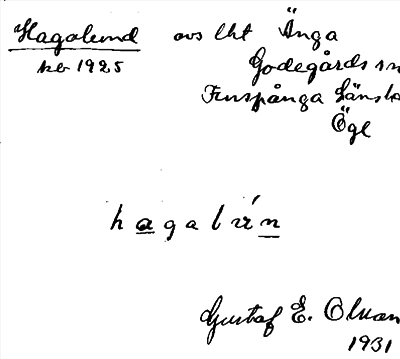 Hagalund avs lht Änga
kb 1925 Godegårds sn
Finspånga länsta
Ögl
hagalun
Gustaf E. Olsan
1931